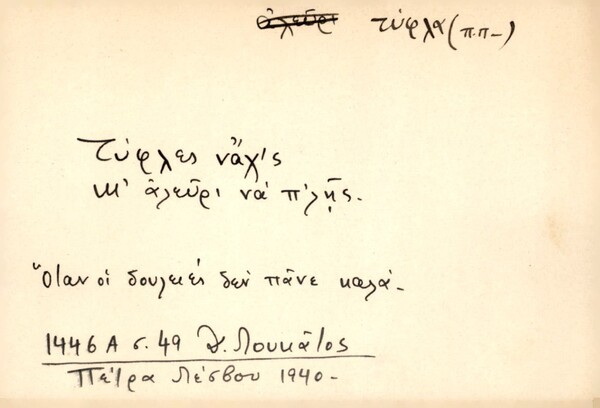 ἀλεῦρι τύφλα (π.π-)
Τύφλες νἄχ'ς
κι' ἀλεῦρι νά π'λῇς.
Ὅταν οἱ δουλειές δεν πᾶνε καλά-
1446 Α σ. 49 Δ. Λουκᾶτος
Πέτρα Λέσβου 1940-